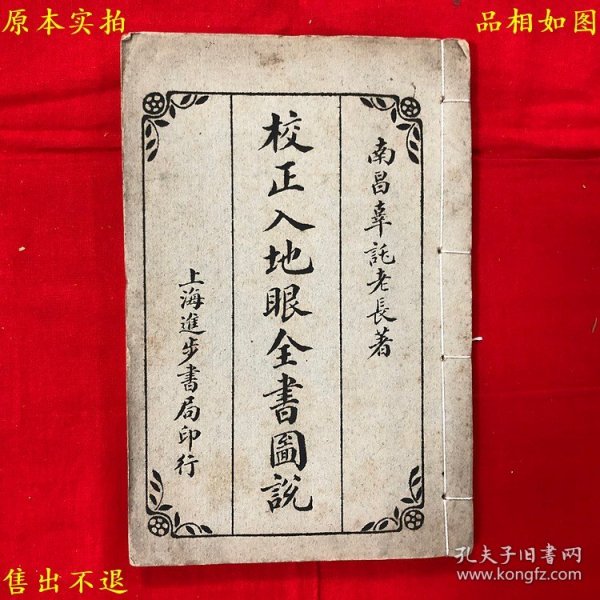 原本实拍
品相如图
南昌辜託老長著
校正入地眼全書圖說
上海進步書局印行
售出不退
孔夫子旧书网
www.kongfz.com